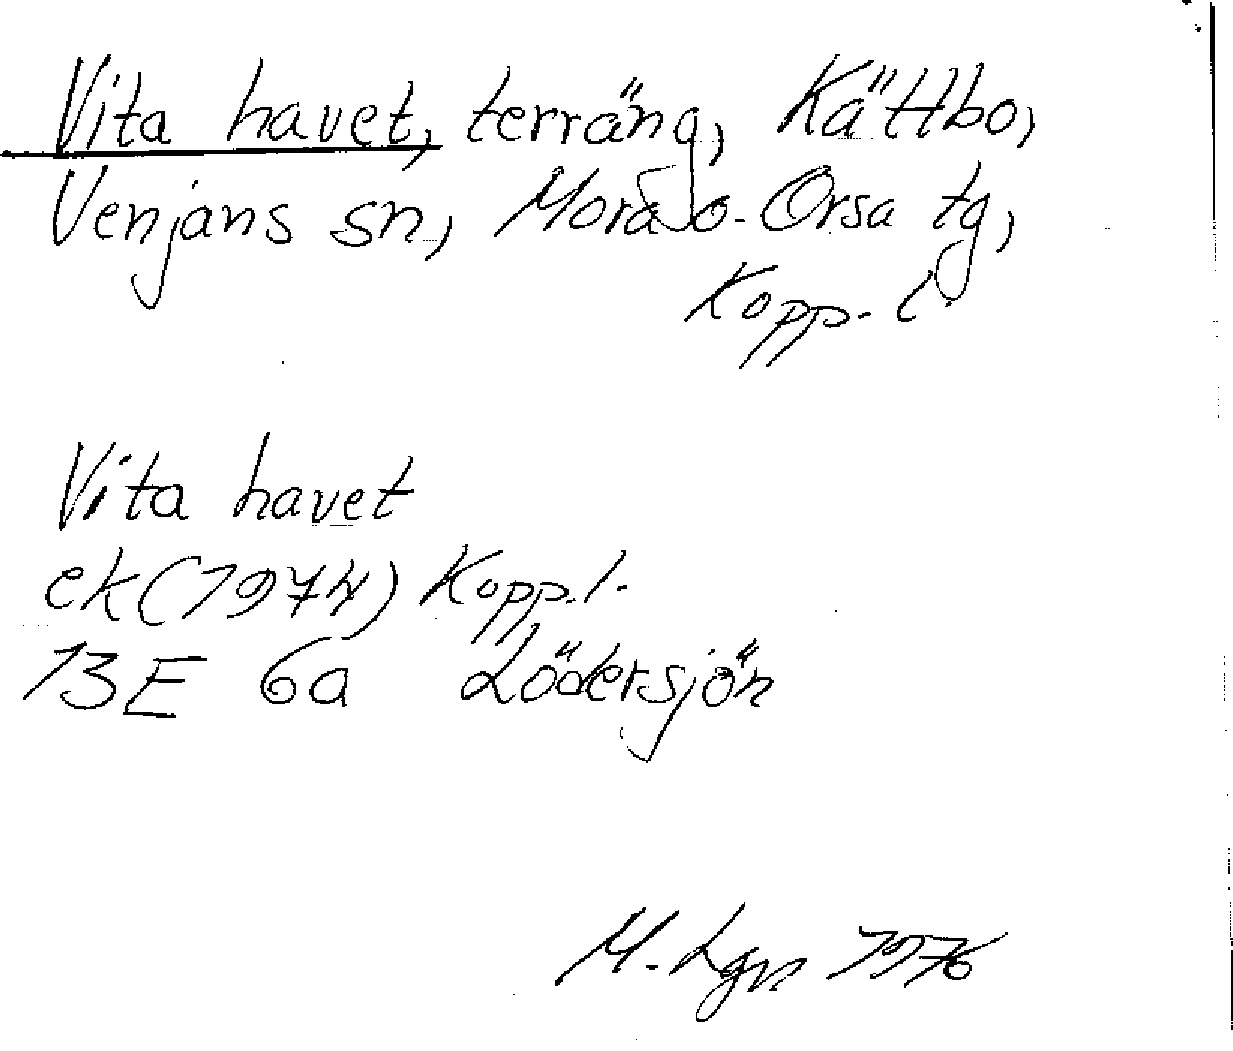 Vita havet, terräng, Kättbo,
Venjans sn, Mora o. Orsa tg,
Kopp. l.
Vita havet
ek (1974) Kopp. l.
13E 6a Lödersjön
M. Lgn 1976